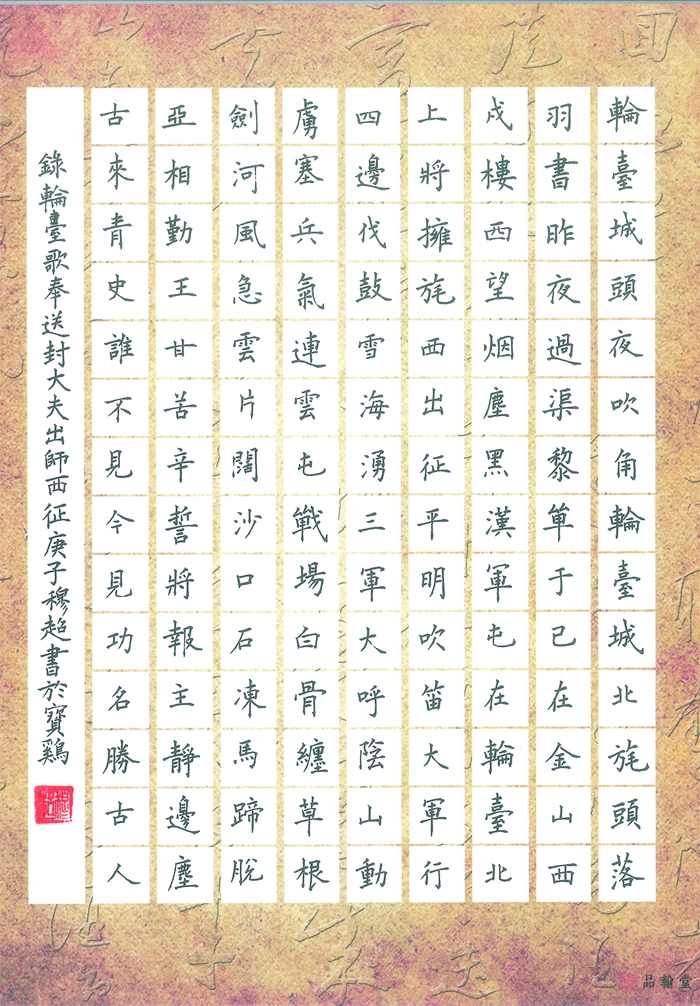 輪臺城頭夜吹角輪臺城北旄頭落
羽書昨夜過渠黎單于已在金山西
戍樓西望烟塵黑漢軍屯在輪臺北
上將擁旄西出征平明吹笛大軍行
四邊伐鼓雪海湧三軍大呼陰山動
虜塞兵氣連雲屯戰場白骨纏草根
劍河風急雲片闊沙口石凍馬蹄脫
亞相勤王甘苦辛誓將報主靜邊塵
古來青史誰不見今見功名勝古人
錄輪臺歌奉送封大夫出師西征庚子穆超書於寶鷄
品翰堂